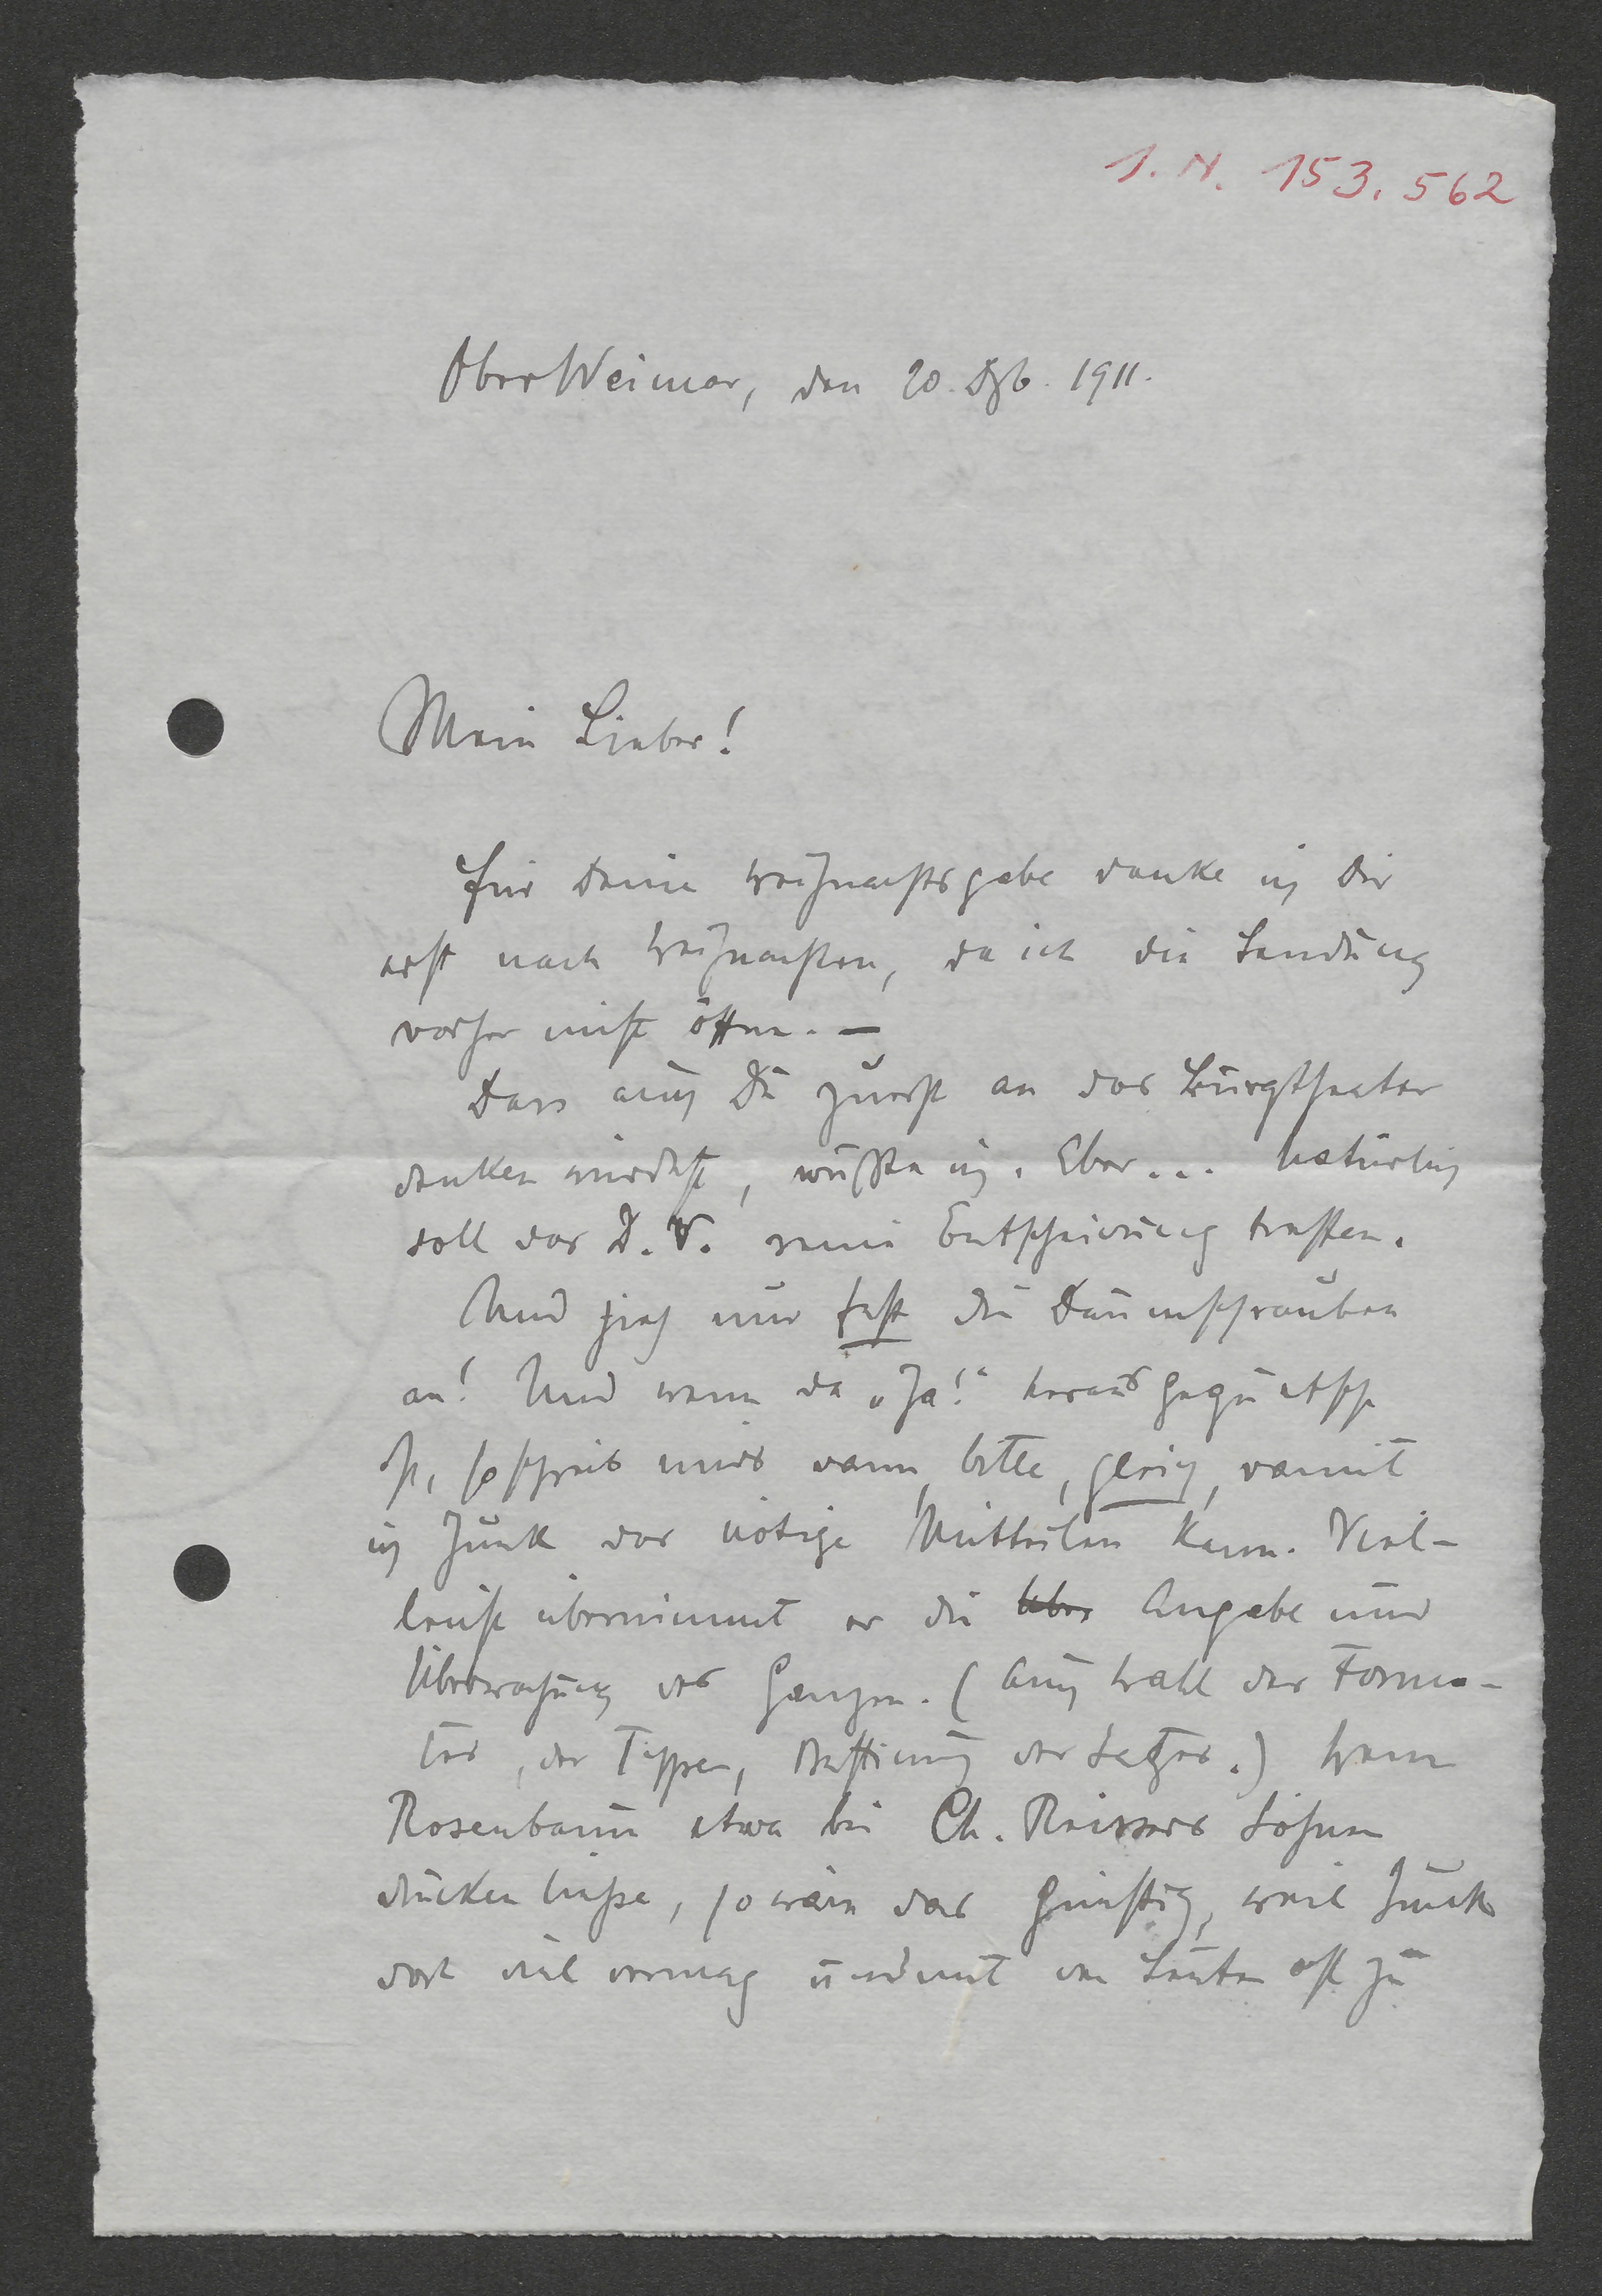 I. N. 153.562
OberWeimar, den 20. Dzb. 1911.
Mein Lieber!
Für Deine Weihnachtsgabe danke ich Dir
erst nach Weihnachten, da ich die Sendung
vorher nicht öffne. —
Dass auch Du zuerst an das Burgtheater
denken würdest, wußte ich. Aber... Natürlich
soll das D. V. seine Entscheidung treffen.
Und zieh nur fest die Daumschrauben
an! Und wenn da „Ja!“ herausgequetscht
ist, so schreib mirs dann, bitte, gleich, damit
ich Junk das nötige Mitteilen kann. Viel-
leicht übernimmt er die Angabe und
Überwachung des Ganzen. (Auch Wahl der Forma-
tes, der Typen, des Satzes.) Wenn
Rosenbaum etwa bei Ch. Reissers Söhnen
drucken ließe, so wäre das günstig, weil Junk
dort viel vermag und mit den Leuten oft zu